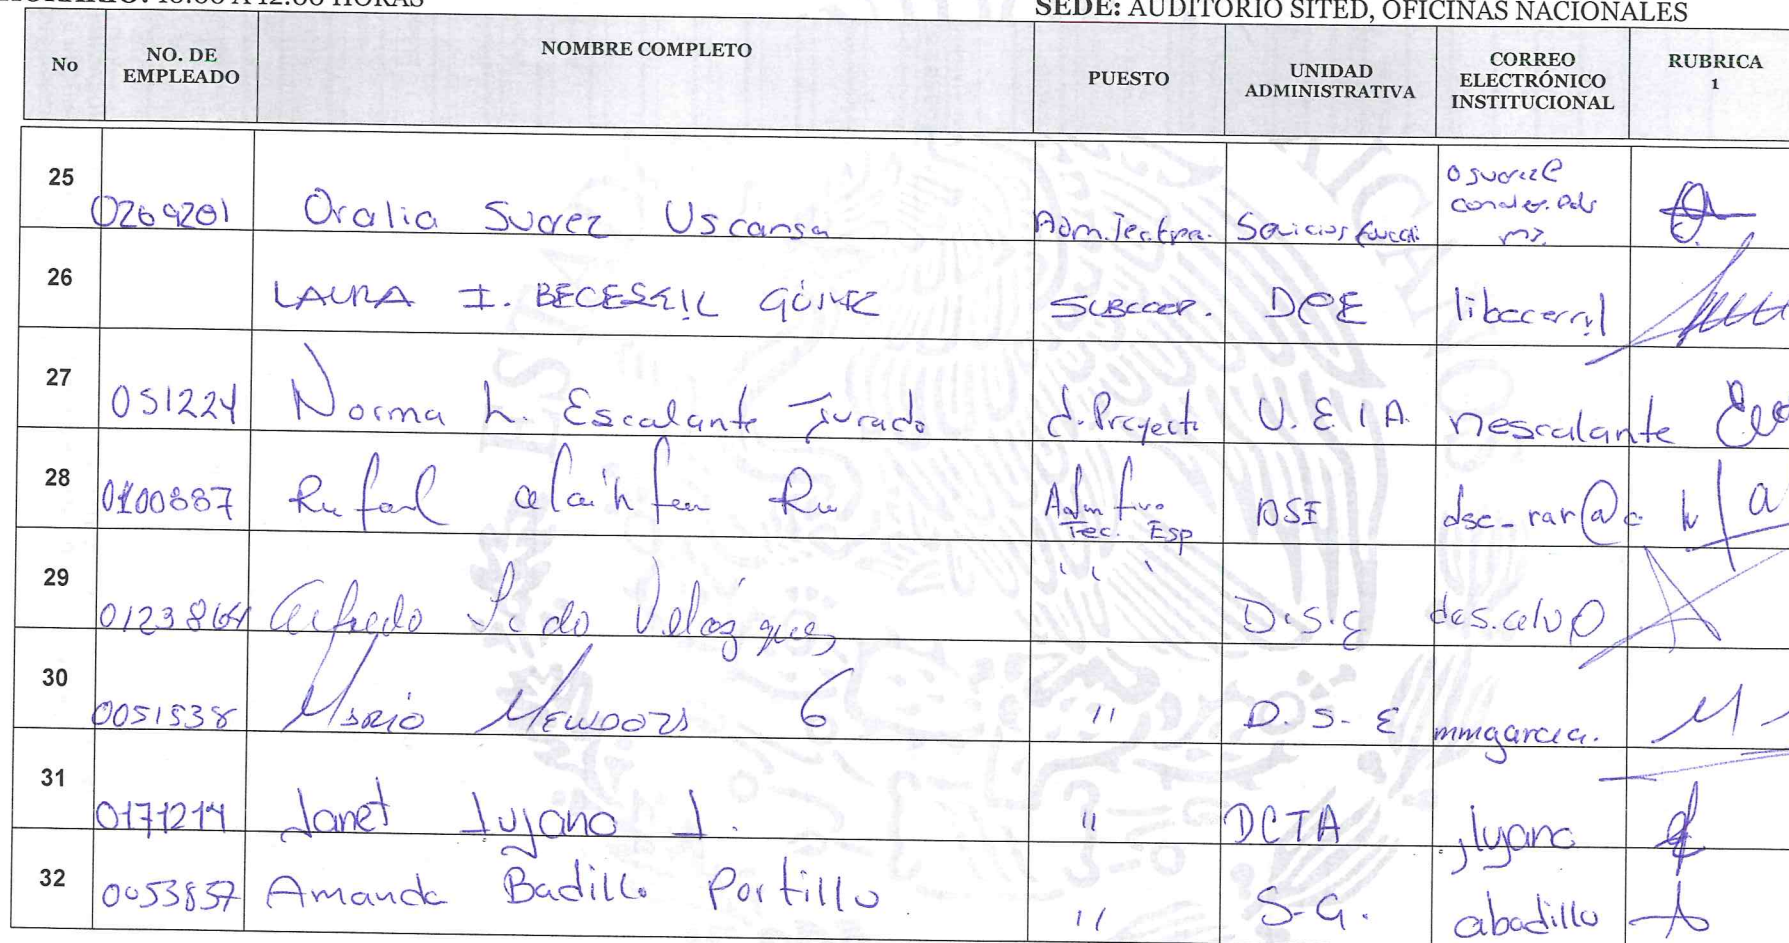 HORARIO: 10:00 A 12:00 HORAS SEDE: AUDITORIO SITED, OFICINAS NACIONALES
No NO. DE EMPLEADO NOMBRE COMPLETO PUESTO UNIDAD ADMINISTRATIVA CORREO ELECTRÓNICO INSTITUCIONAL RUBRICA 1
25 0269201 Oralia Suarez Uscanga Adm. Tec.
26 LAURA I. BECERRIL DCE libecerril
27 051224 Norma L. Escalante Jurado J. Proyecto U.E.I.A. nescalante
28 0100887 Rafael DSE dsc_rar@c
Tec. Esp
29 01238164 Alfredo Velázquez D.S.E
30 0051538 Mario Mendoza G " D.S.E mmgarcia.
31 0171214 Janet Lujano J. " DCTA jlujano
32 0053857 Amanda Badillo Portillo " S-G. abadillo